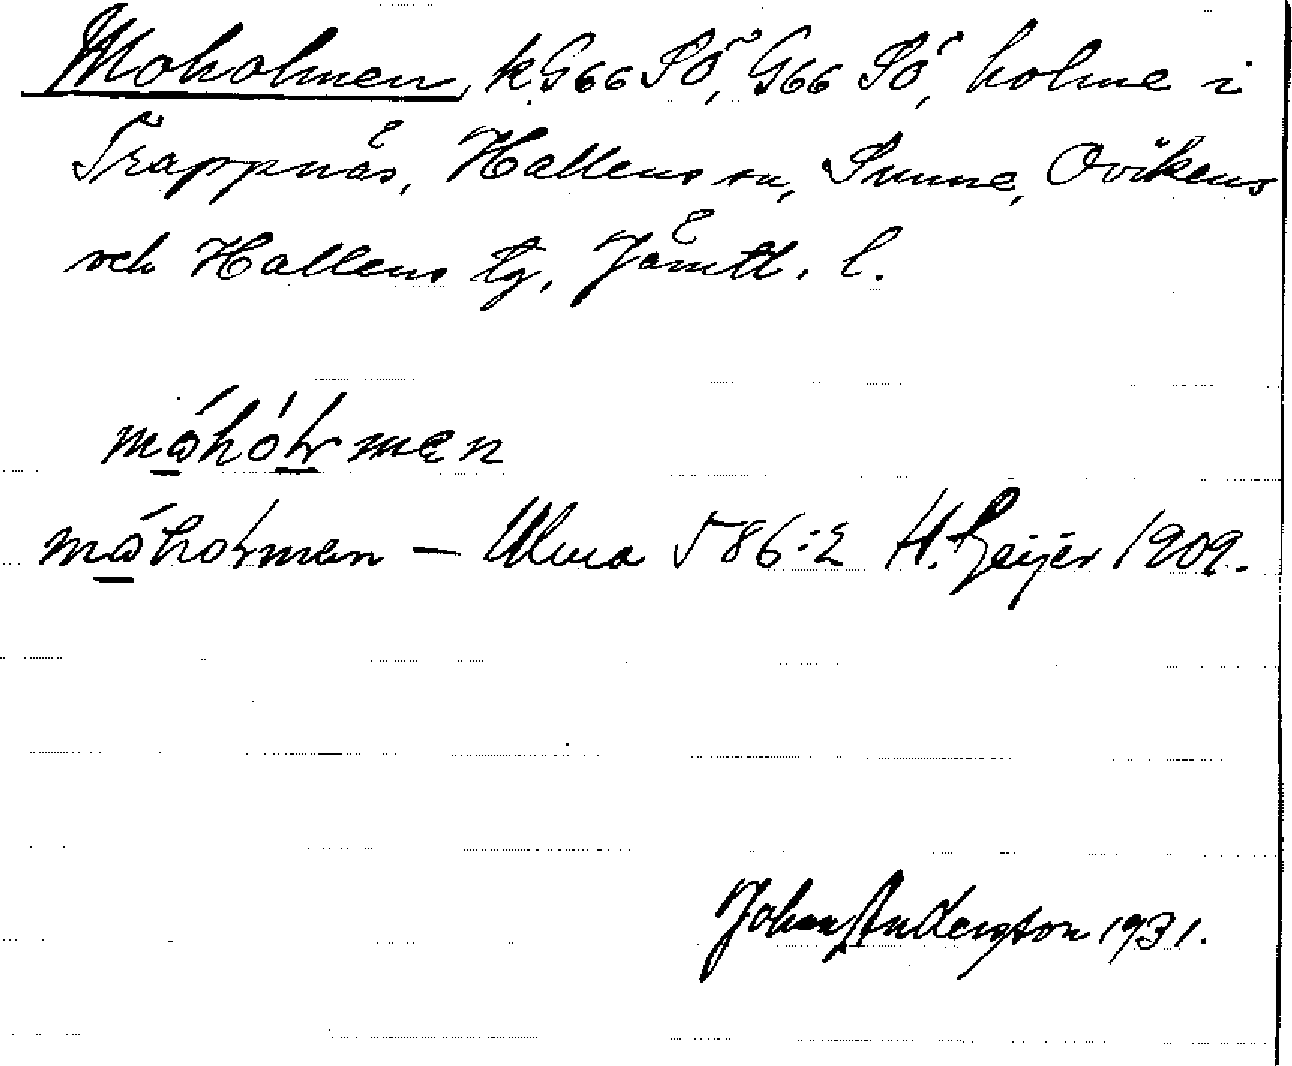 Moholmen, k. G66 SÖ, G66 SÖ, holme i
Trappnäs, Hallens sn, Sunne, Ovikens
och Hallens tg, Jämtl. l.
måhólmen
måholmen — Ulma 586:2 H. Geijer 1909.
Johan Anderston 1931.